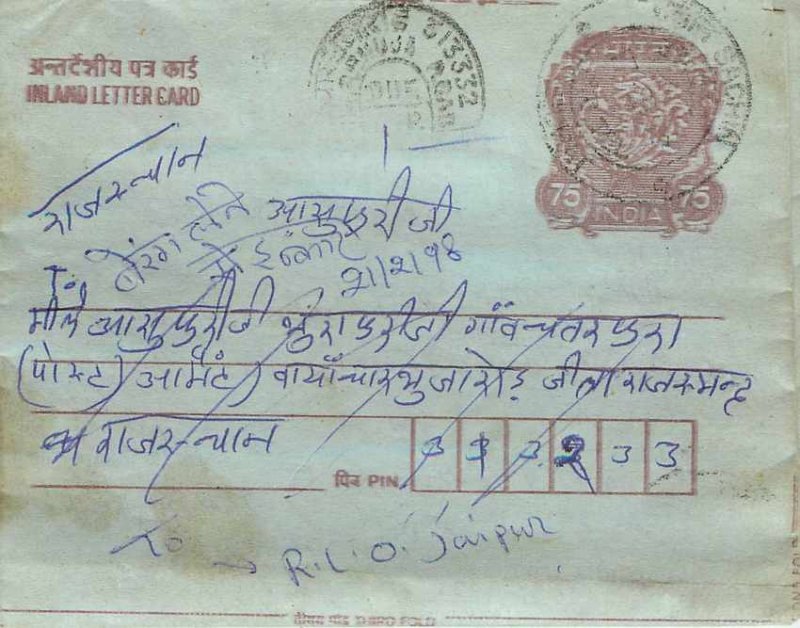 अन्तर्देशीय पत्र कार्ड
INLAND LETTER CARD
313332
75 INDIA 75
राजस्थान
बेरंग लेने
से इन्कार
आसुफुरी जी
21/2/98
To,
मीले आसुफुरीजी भुराफुरीजी गाँव
(पोस्ट) आमेट) वायाँ चारभुजा रोड़ जीला राजसमन्द
राजस्थान
पिन PIN 3 1 3 2 3 3
To → R.L.O. Jaipur
तीसरा मोड़ THIRD FOLD